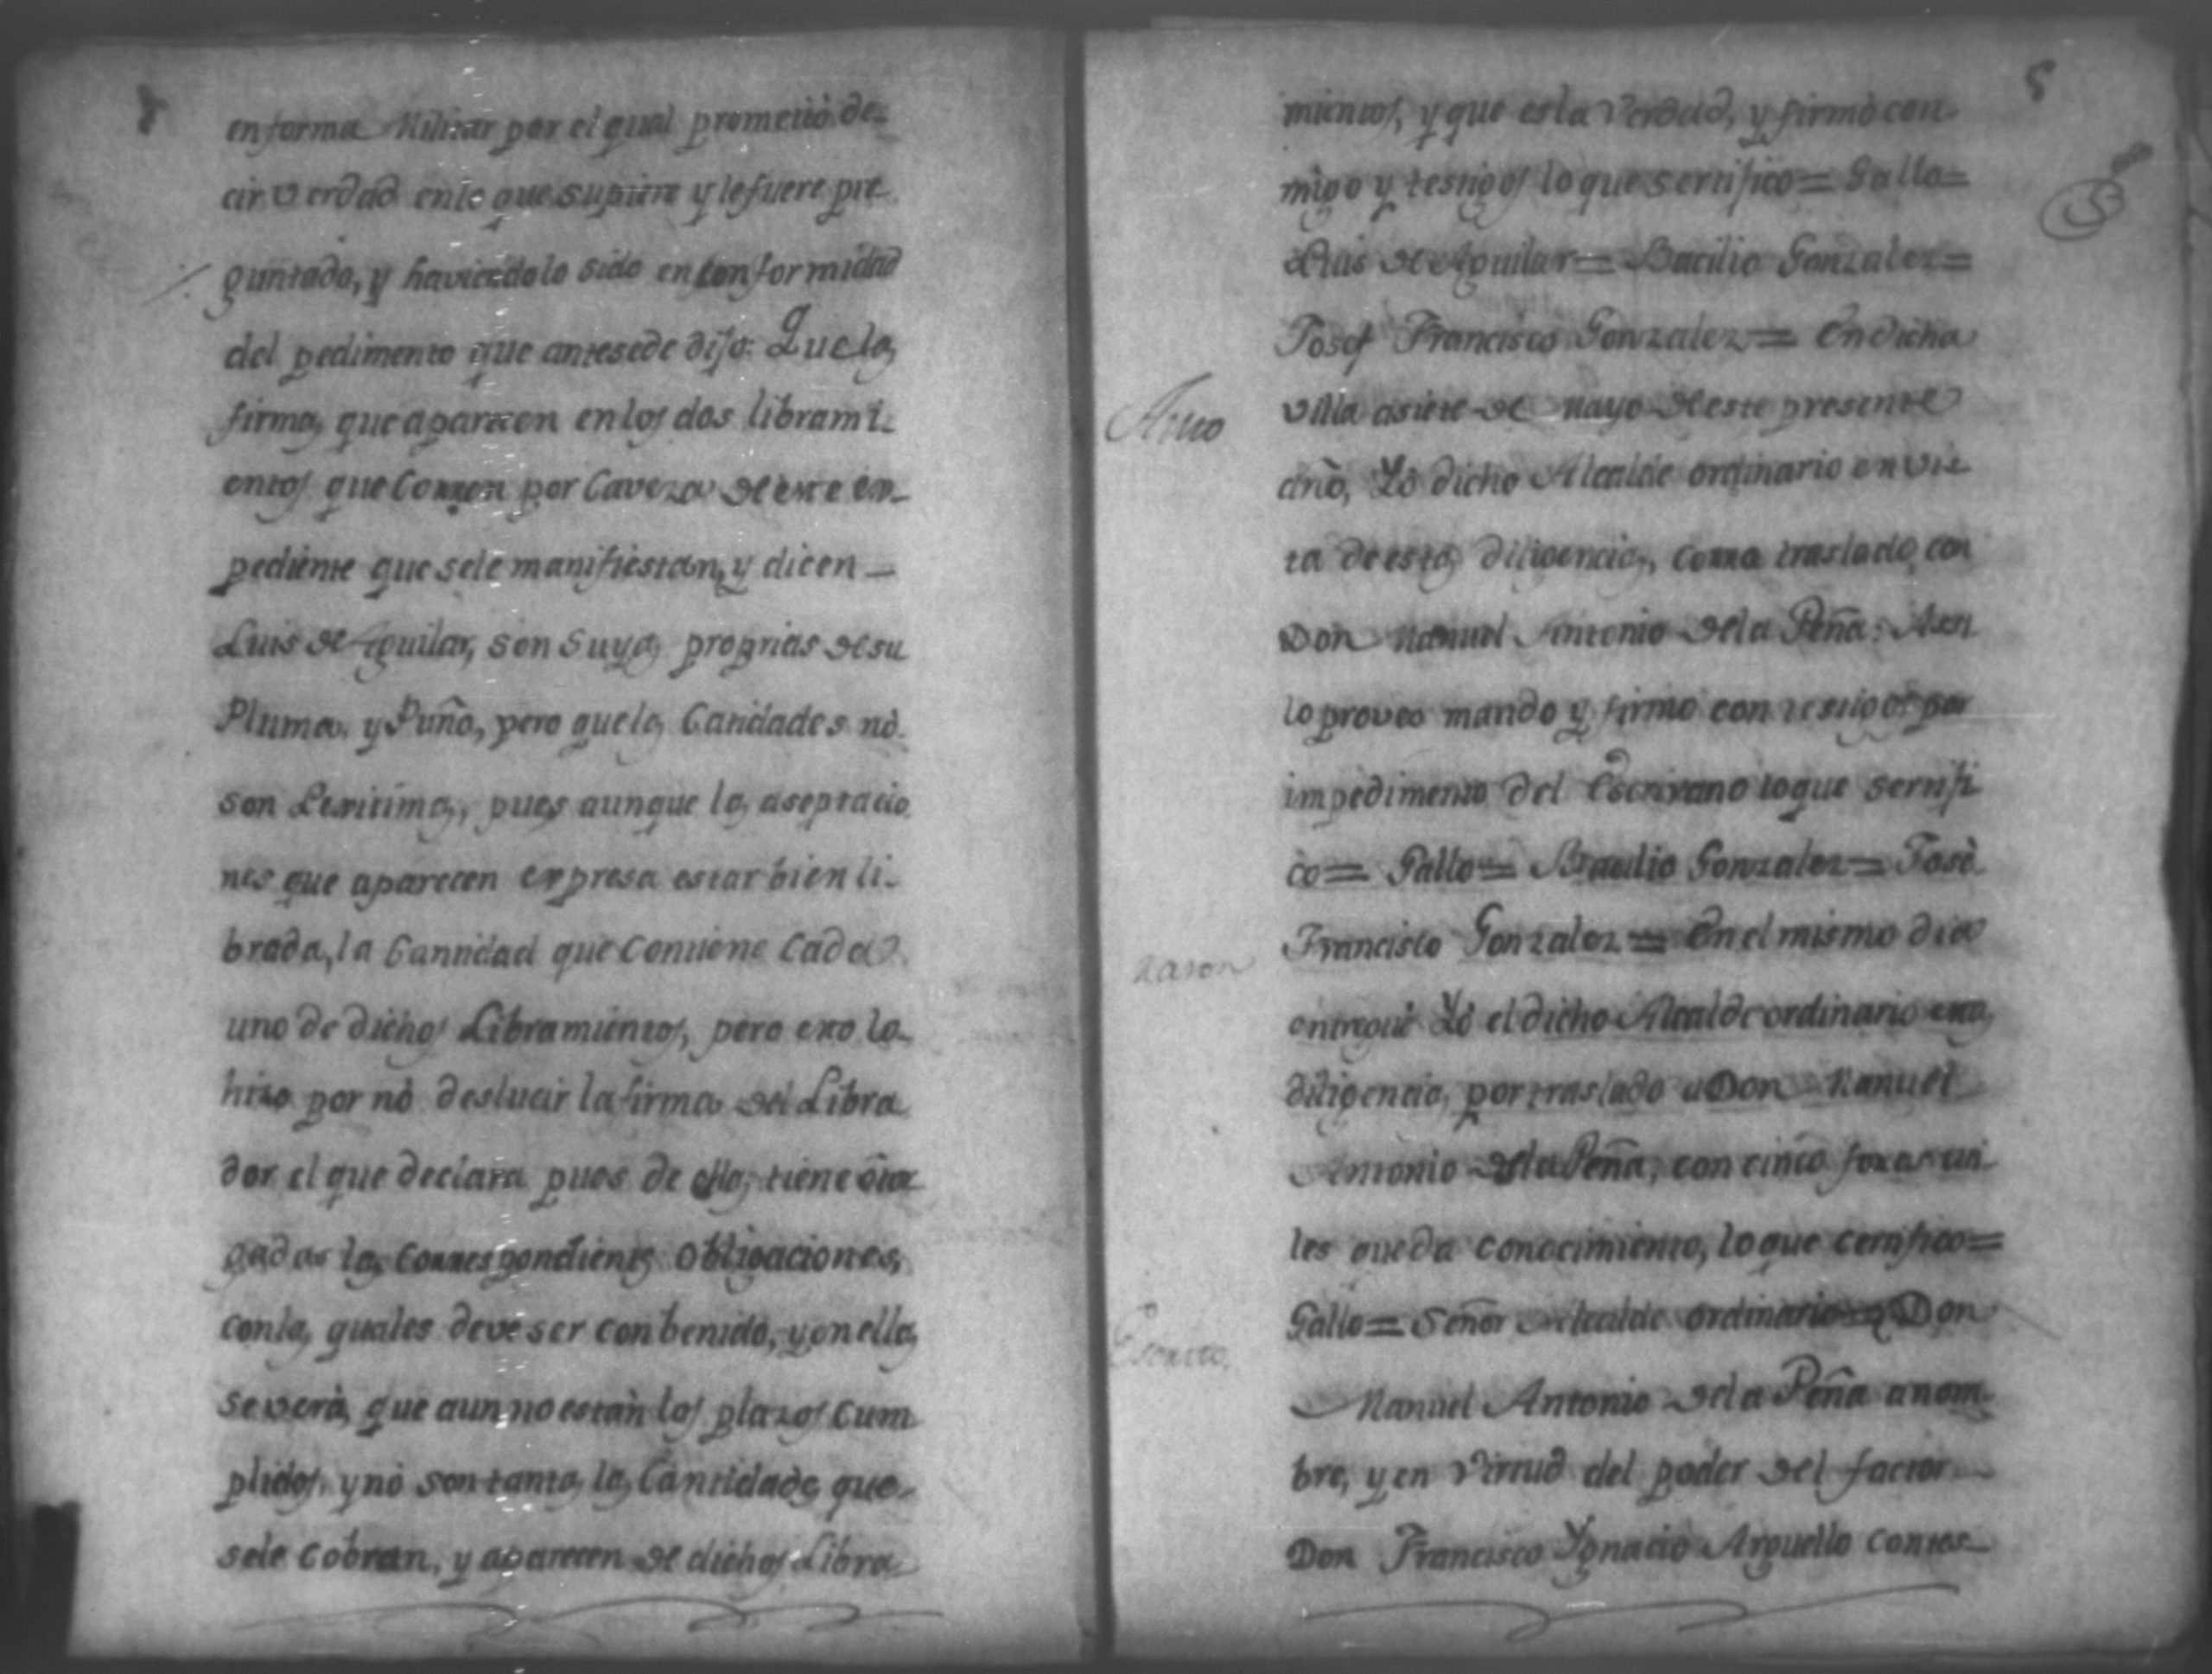 en forma Militar por el qual prometiò de-
cir verdad en lo que supiere y le fuere pre-
guntado, y haviendolo sido en conformidad
del pedimento que antesede dijo: Que las
firmas que aparecen en los dos librami-
entos que Corren por Caveza de este ex-
pediente que sele manifiestan, y dicen
Luis de Aguilar, son suyas proprias de su
Pluma, y Puño, pero que las Cantidades nò
son Lexitimas, pues aunque las aseptacio
nes que aparecen expresa estar bien li-
brada, la Cantidad que Contiene Cada
uno de dichos Libramientos, pero exo lo
hizo por nò deslucir la firma del Libra
dor el que declara pues de ellas tiene otor
gadas las Correspondientes obligaciones,
con las quales deve ser conbenido, y en ellas
se verà, que aun no estàn los plazos Cum
plidos, y nò son tantas las Cantidades que
sele Cobran, y aparecen de dichos Libra
5
5
mientos, y que es la Verdad, y firmò con-
migo y testigos lo que sertifico = Gallo =
Luis de Aguilar = Bacilio Gonzalez =
Josef Francisco Gonzalez = En dicha
Auto
villa a siete de Mayo de este presente
año, Yò dicho Alcalde ordinario en vis
ta de estas diligencias, corra traslado con
Don Manuel Antonio de la Peña: Asi
lo proveo mando y firmo con testigos por
impedimento del Escrivano lo que sertifi
co = Gallo = Braulio Gonzalez = Josè
Francisco Gonzalez = En el mismo dia
Razon
entreguè Yò el dicho Alcalde ordinario estas
diligencias por traslado a Don Manuel
Antonio de la Peña, con cinco foxas uti-
les queda conocimiento, lo que certifico =
Gallo = Señor Alcalde ordinario = Don
Escrito
Manuel Antonio de la Peña a nom-
bre, y en Virtud del poder del factor
Don Francisco Ygnacio Arguello contes-